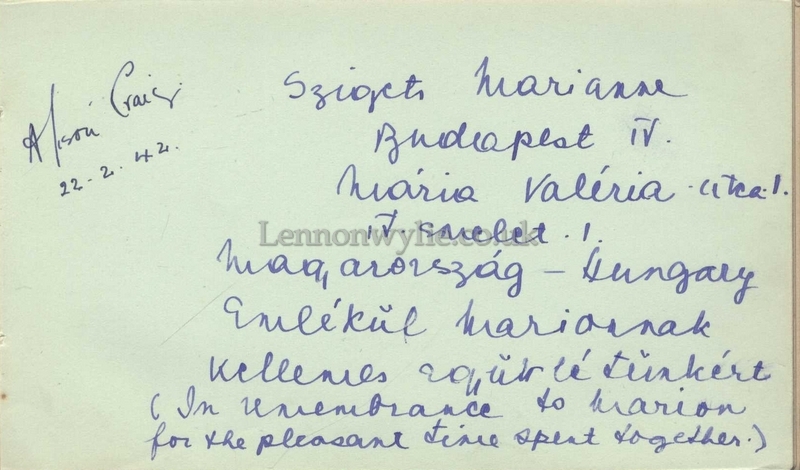 Alison Craig
22-2-42.
Szigeti Marianne
Budapest IV.
Mária Valéria utca 1.
IV. emelet. 1.
Lennonwylie.co.uk
Magyarország – Hungary
Emlékül Marionnak
kellemes együttlétünkért
(In remembrance to Marion
for the pleasant time spent together.)